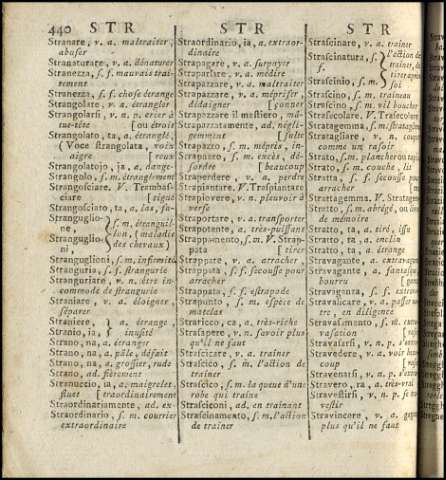 440 STR
STR
STR
Stranare, v. a. maltraiter,
abuser
Stranaturare, v. a. dénaturer
Stranezza, s. f. mauvais trai-
tement
Stranezza, s. f. chose étrange
Strangolare, v. a. étrangler
Strangolarsi, v. n. p. crier à
tue-tête [ou étroit
Strangolato, ta, a. étranglé,
(Voce strangolata, voix
aigre [roux
Strangolatojo, ia, a. dange-
Strangolo, s. m. étranglement
Strangosciare. V. Trambas-
ciare [ciqué
Strangosciato, ta, a. las, fa-
Stranguglio-
ne,
Strangugli-
oni,
s. m. étranguil-
lon, (maladie
des chevaux)
Stranguglioni, s. m. infirmité
Stranguria, s. f. strangurie
Stranguriare, v. n. être in-
commodé de strangurie
Straniare, v. a. éloigner,
séparer
Straniere,
Stranio, ia,
a. étrange,
inusité
Strano, na, a. étranger
Strano, na, a. pâle, défait
Strano, na, a. grossier, rude
Strano, ad. fièrement
Stranuccio, ia, a. maigrelet,
fluet [traordinairement
Straordinariamente, ad. ex-
Straordinario, s. m. courrier
extraordinaire
Straordinario, ia, a. extraor-
dinaire
Strapagare, v. a. surpayer
Straparlare, v. a. médire
Strapazzare, v. a. maltraiter
Strapazzare, v. a. mépriser,
dédaigner [çonner
Strapazzare il mestiero, mâ-
Strapazzatamente, ad. négli-
gemment [sulte
Strapazzo, s. m. mépris, in-
Strapazzo, s. m. excès, dé-
sordre [beaucoup
Straperdere, v. a. perdre
Straplantare. V. Traspiantare
Strapiovere, v. n. pleuvoir à
verse
Straportare, v. a. transporter
Strapotente, a. très-puissant
Strappamento, s. m. V. Strap-
pata [tirer
Strappare, v. a. arracher,
Strappata, s. f. secousse pour
arracher
Strappata, s. f. estrapade
Strapunto, s. m. espèce de
matelas
Straricco, ca, a. très-riche
Strasapere, v. n. savoir plus
qu'il ne faut
Strascicare, v. a. traîner
Strascico, s. m. l'action de
traîner
Strascico, s. m. la queue d'une
robe qui traîne
Strasciconi, ad. en traînant
Strascinamento, s. m. l'action
de traîner
Strascinare, v. a. traîner
Strascinatura, s.
f.
Strascinio, s. m.
l'action de
traîner, de
Strascino, s. m. traîneau
Strascino, s. m. vil boucher
Strasecolare. V. Trasecolare
Stratagemma, s. m. stratagême
Stratagliare, v. a. couper
comme un rasoir
Strato, s. m. plancher ou tapis
Strato, s. m. couche, lit
Stratta, s. f. secousse pour
arracher
Strattagemma. V. Stratag.
Stratto, s. m. abrégé, ou livre
de mémoire
Stratto, ta, a. tiré, issu
Stratto, ta, a. enclin
Stratto, ta, a. étrange
Stravagante, a. extravagant
Stravagante, a. fantasque,
bourru
Stravaganza, s. f. extrava-
Stravalicare, v. a. passer ou-
tre, en diligence
Stravasamento, s. m. extra-
vasation
Stravasarsi, v. n. p.
Stravedere, v. a. voir beau-
coup
Stravenarsi, v. n. p.
Stravero, ra, a. très-vrai
Stravestirsi, v. n. p. se tra-
vestir
Stravincere, v. a. gagner
plus qu'il ne faut